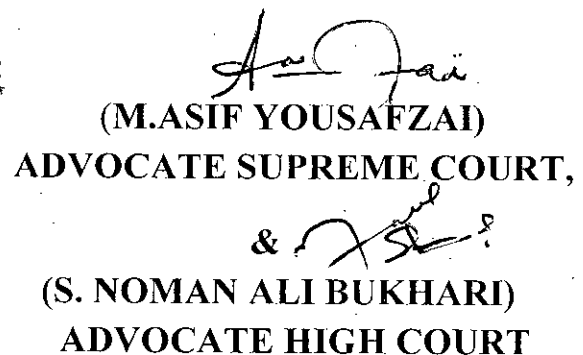 (M.ASIF YOUSAFZAI)
ADVOCATE SUPREME COURT,
&
(S. NOMAN ALI BUKHARI)
ADVOCATE HIGH COURT